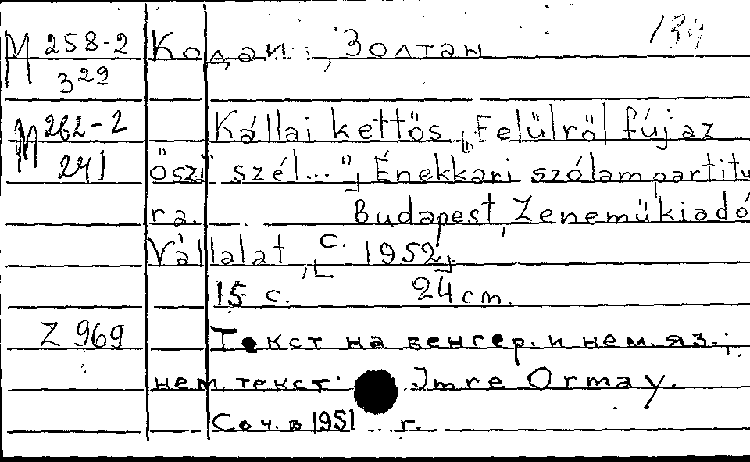 M 258-2
329
Кодаи, Золтан
M 262-2
241
Kállai kettős „Felülről fúj az
őszi szél..." Énekkari szólampartitu
ra. Budapest, Zeneműkiadó
Vállalat, c. 1952
15 c. 24 cm.
Z 969
Текст на венгер. и нем. яз.;
нем. текст: Imre Ormay.
Соч. в 1951 г.